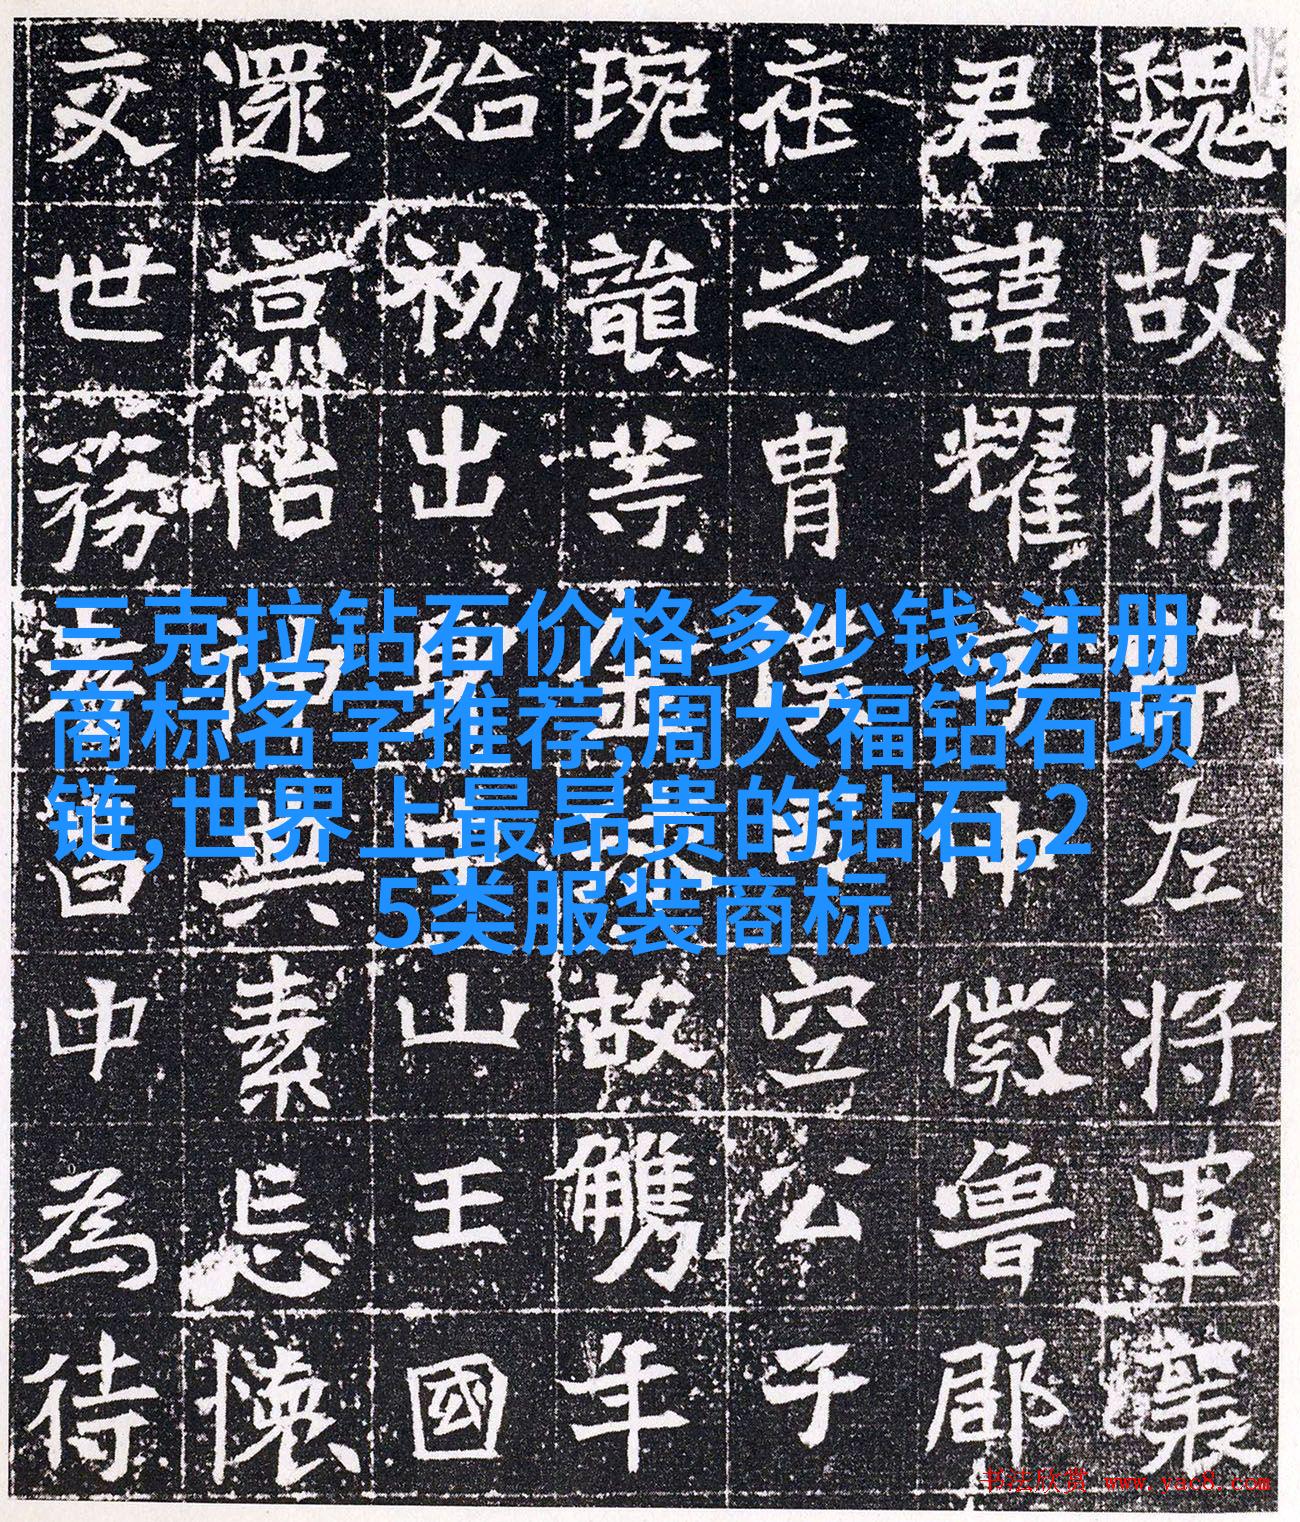 三克拉钻石价格多少钱,注册
商标名字推荐,周大福钻石项
链,世界上最昂贵的钻石,2
5类服装商标
魏故持左將軍襄
君諱耀仲徽魯郡
在之胄空公子
琬韻故觿年
始初出山王國
還京怡素忘懷
交世務中為待
书法欣赏 www.yac8.com